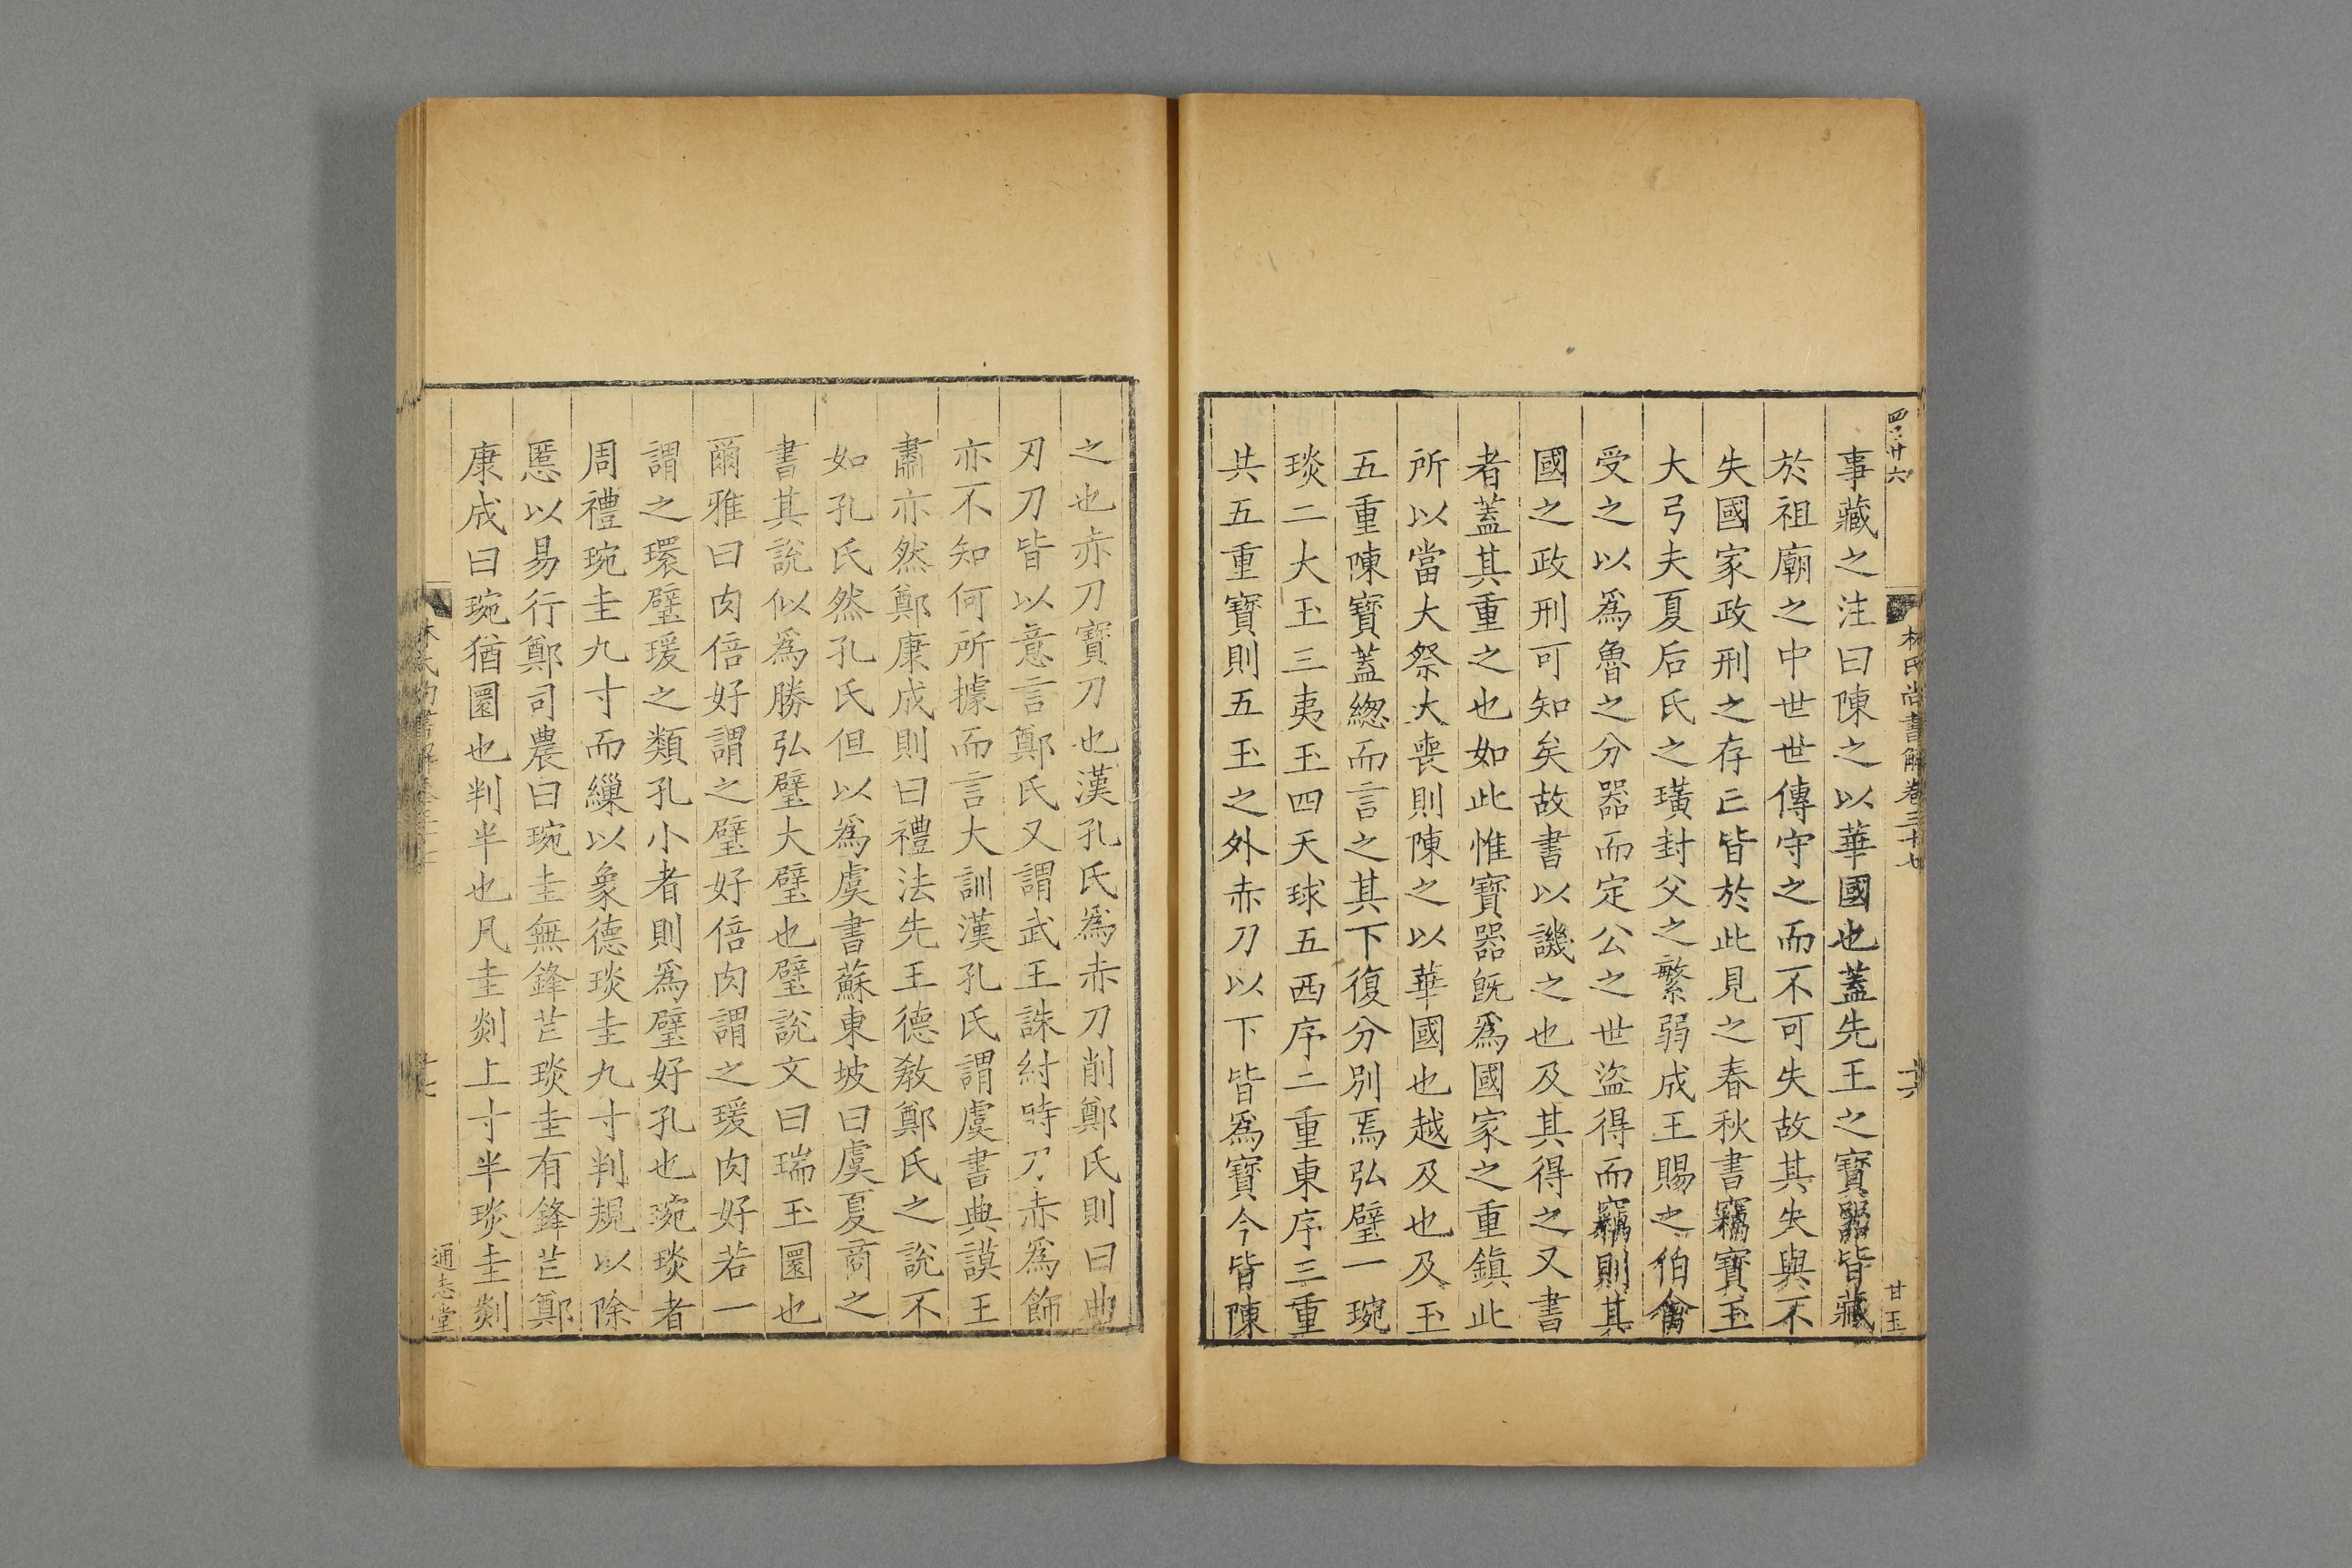 四百廿六
林氏尚書解卷三十七
十六
甘玉
事藏之注曰陳之以華國也蓋先王之寶器皆藏
於祖廟之中世世傳守之而不可失故其失與不
失國家政刑之存亡皆於此見之春秋書竊寶玉
大弓夫夏后氏之璜封父之繁弱成王賜之伯禽
受之以爲魯之分器而定公之世盜得而竊則其
國之政刑可知矣故書以譏之也及其得之又書
者蓋其重之也如此惟寶器旣爲國家之重鎮此
所以當大祭大喪則陳之以華國也越及也及玉
五重陳寶蓋緫而言之其下復分別焉弘璧一琬
琰二大玉三夷玉四天球五西序二重東序三重
共五重寶則五玉之外赤刀以下皆爲寶今皆陳
之也赤刀寶刀也漢孔氏爲赤刀削鄭氏則曰曲
刃刀皆以意言鄭氏又謂武王誅紂時刀赤爲飾
亦不知何所據而言大訓漢孔氏謂虞書典謨王
肅亦然鄭康成則曰禮法先王德敎鄭氏之說不
如孔氏然孔氏但以爲虞書蘇東坡曰虞夏商之
書其說似爲勝弘璧大璧也璧說文曰瑞玉圜也
爾雅曰肉倍好謂之璧好倍肉謂之瑗肉好若一
謂之環璧瑗之類孔小者則爲璧好孔也琬琰者
周禮琬圭九寸而繅以象德琰圭九寸判規以除
慝以易行鄭司農曰琬圭無鋒芒琰圭有鋒芒鄭
康成曰琬猶圜也判半也凡圭剡上寸半琰圭剡
十七
通志堂